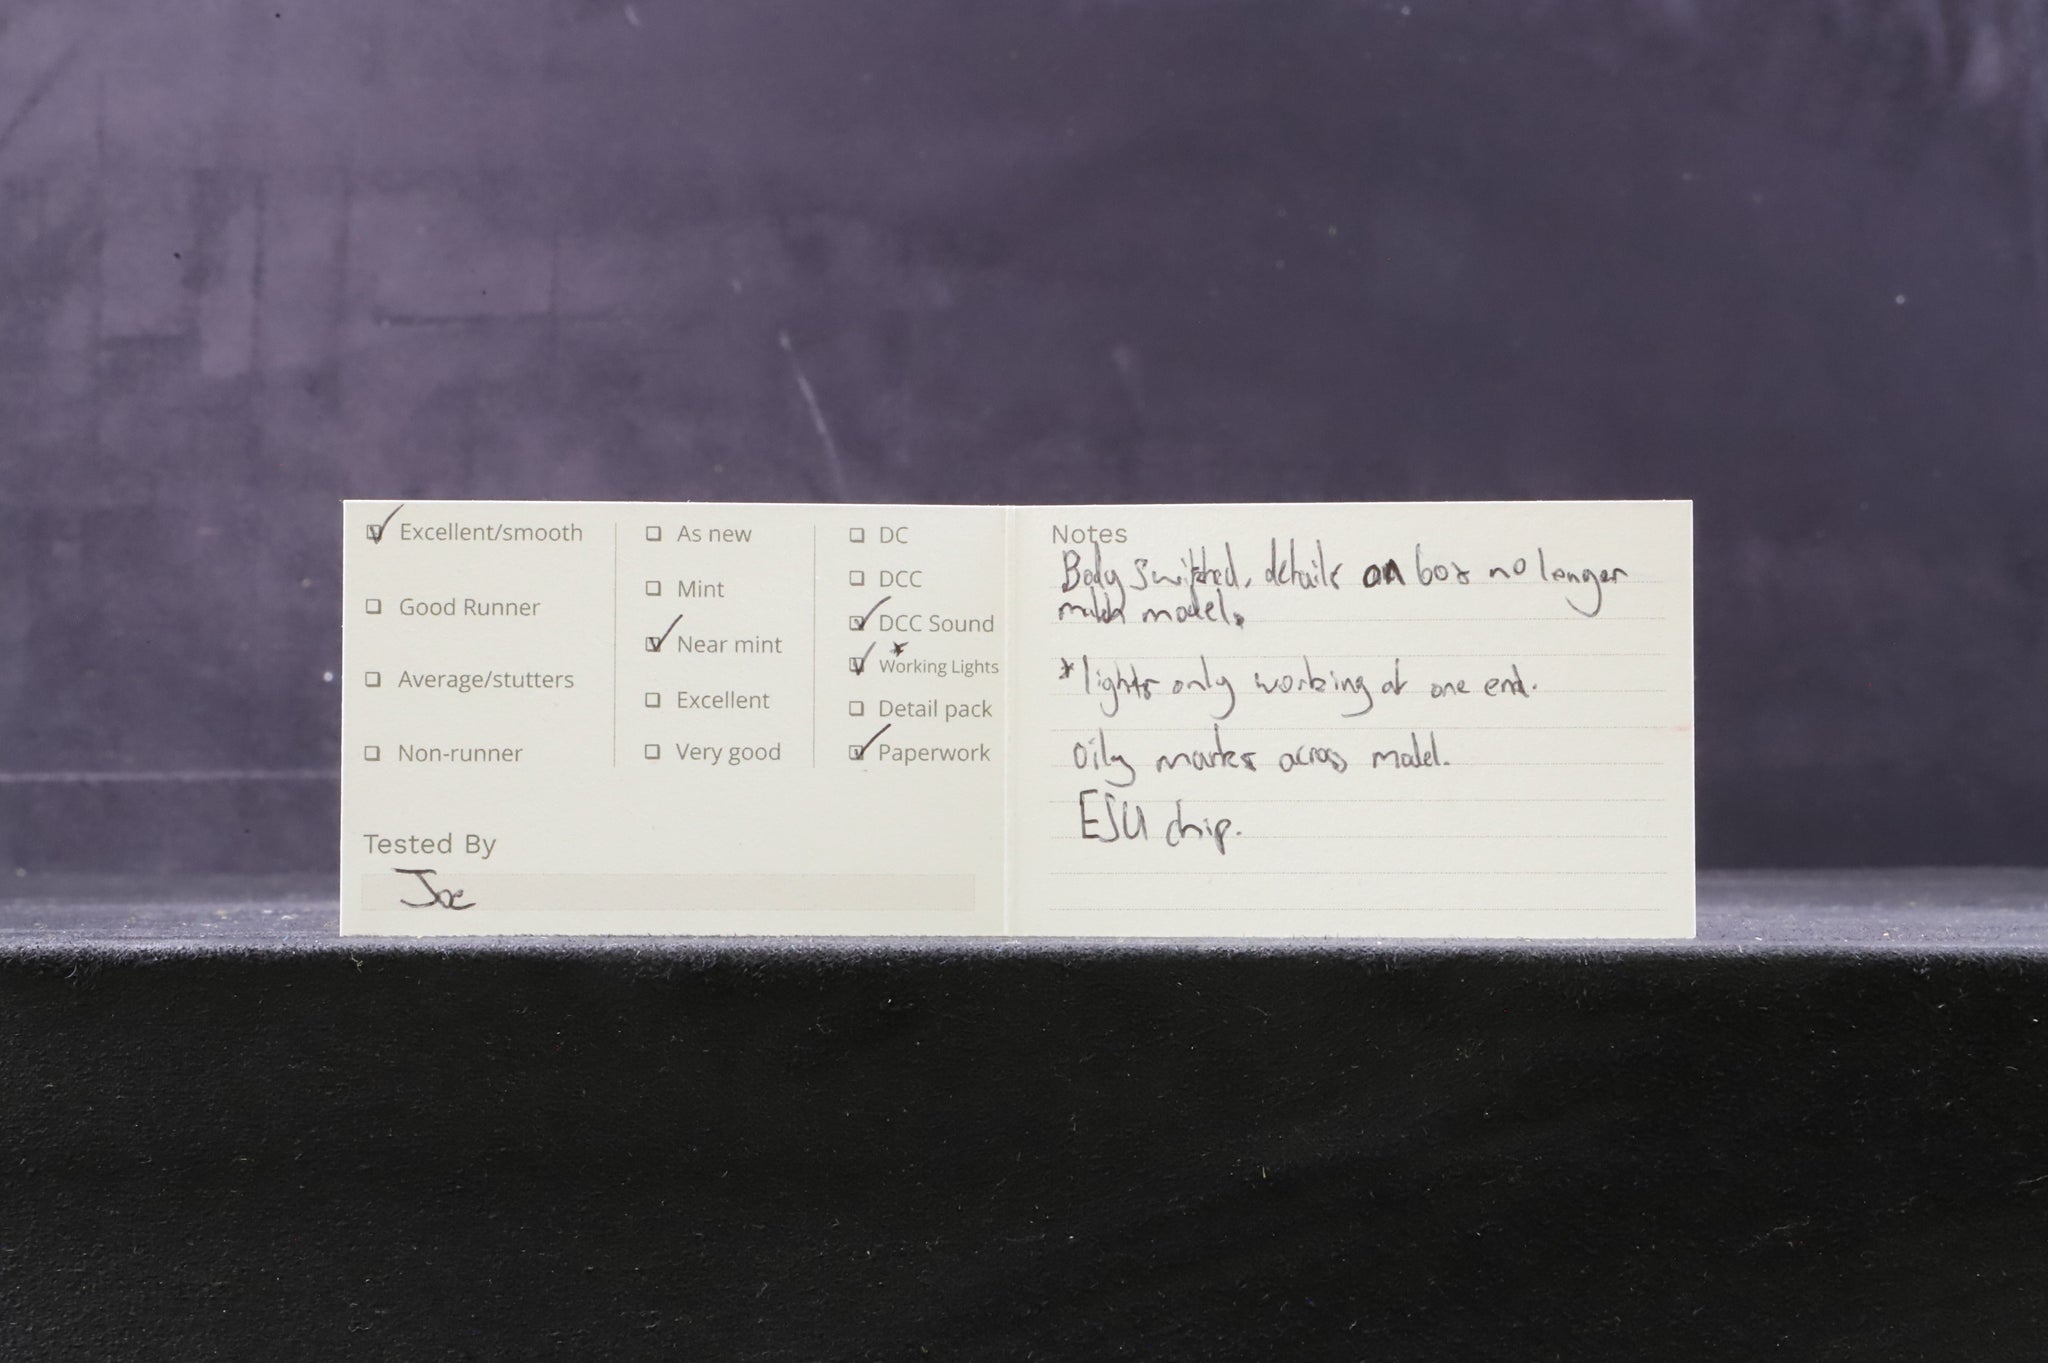 Excellent/smooth
Good Runner
Average/stutters
Non-runner
As new
Mint
Near mint
Excellent
Very good
DC
DCC
DCC Sound
*
Working Lights
Detail pack
Paperwork
Tested By
Joe
Notes
Body switched, details on box no longer
match model.
*lights only working at one end.
Oily marks across model.
ESU chip.